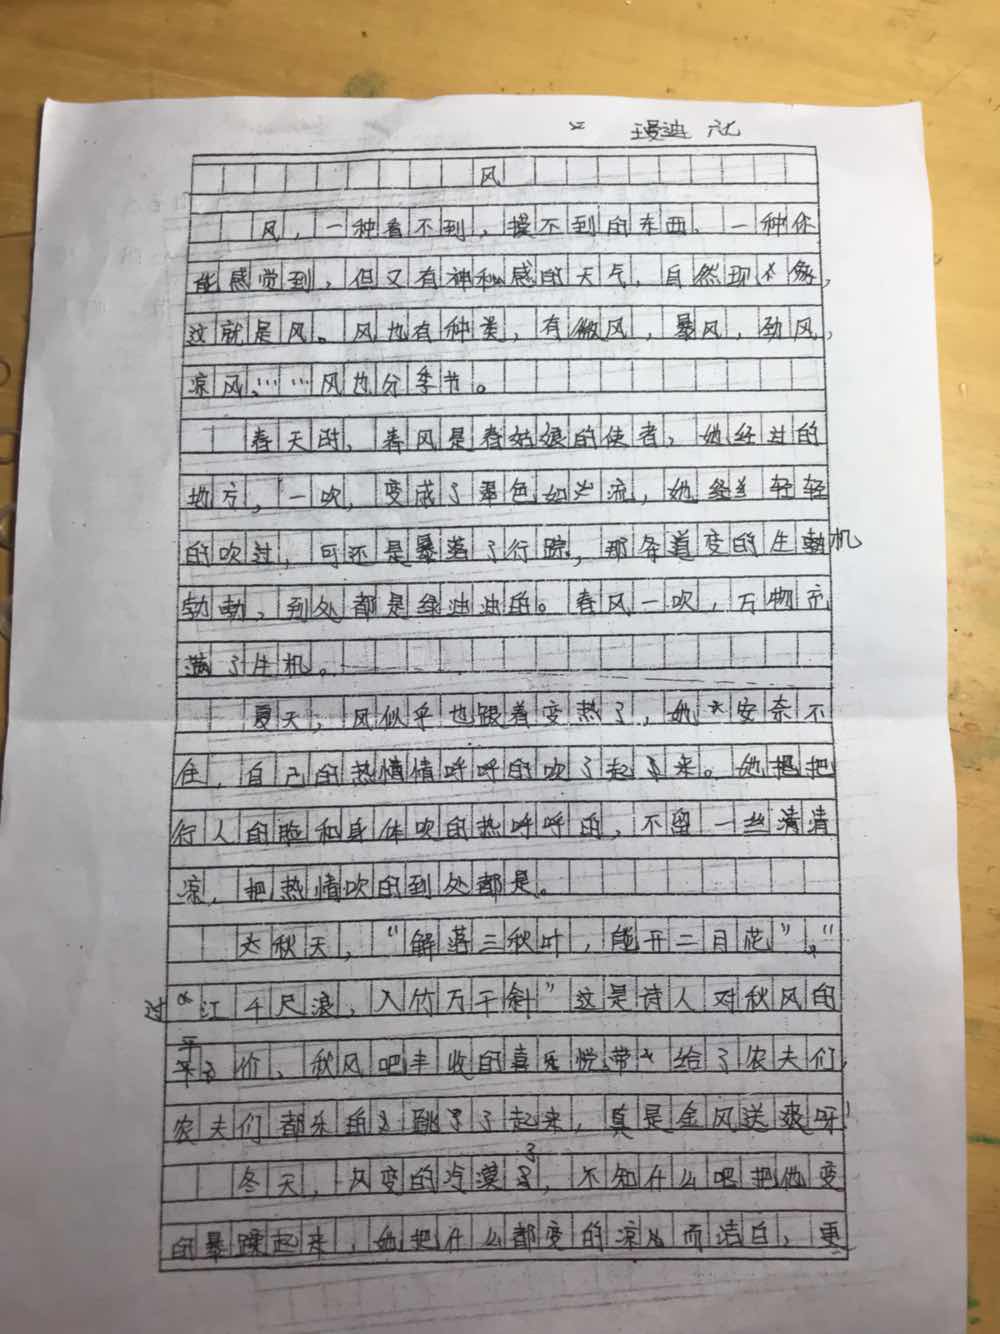 风
风，一种看不到，摸不到的东西、一种你
能感觉到，但又有神秘感的天气，自然现象，
这就是风。风也有种类，有微风，暴风，劲风，
凉风……风也分季节。
春天时，春风是春姑娘的使者，她经过的
地方，一吹，变成了翠色如流，她轻轻
的吹过，可还是暴落了行踪，那条道变的生机
勃勃，到处都是绿油油的。春风一吹，万物充
满了生机。
夏天，风似乎也跟着变热了，她安奈不
住，自己的热情情呼呼的吹了起来。她把
行人的脸和身体吹的热呼呼的，不留一丝清
凉，把热情吹的到处都是。
秋天，“解落三秋叶，能开二月花”，“
过江千尺浪，入竹万干斜”这是诗人对秋风的
评价、秋风吧丰收的喜悦带给了农夫们，
农夫们都乐的跳了起来，真是金风送爽呀！
冬天，风变的冷漠了，不知什么吧把他变
的暴躁起来，她把什么都变的凉而洁白，更